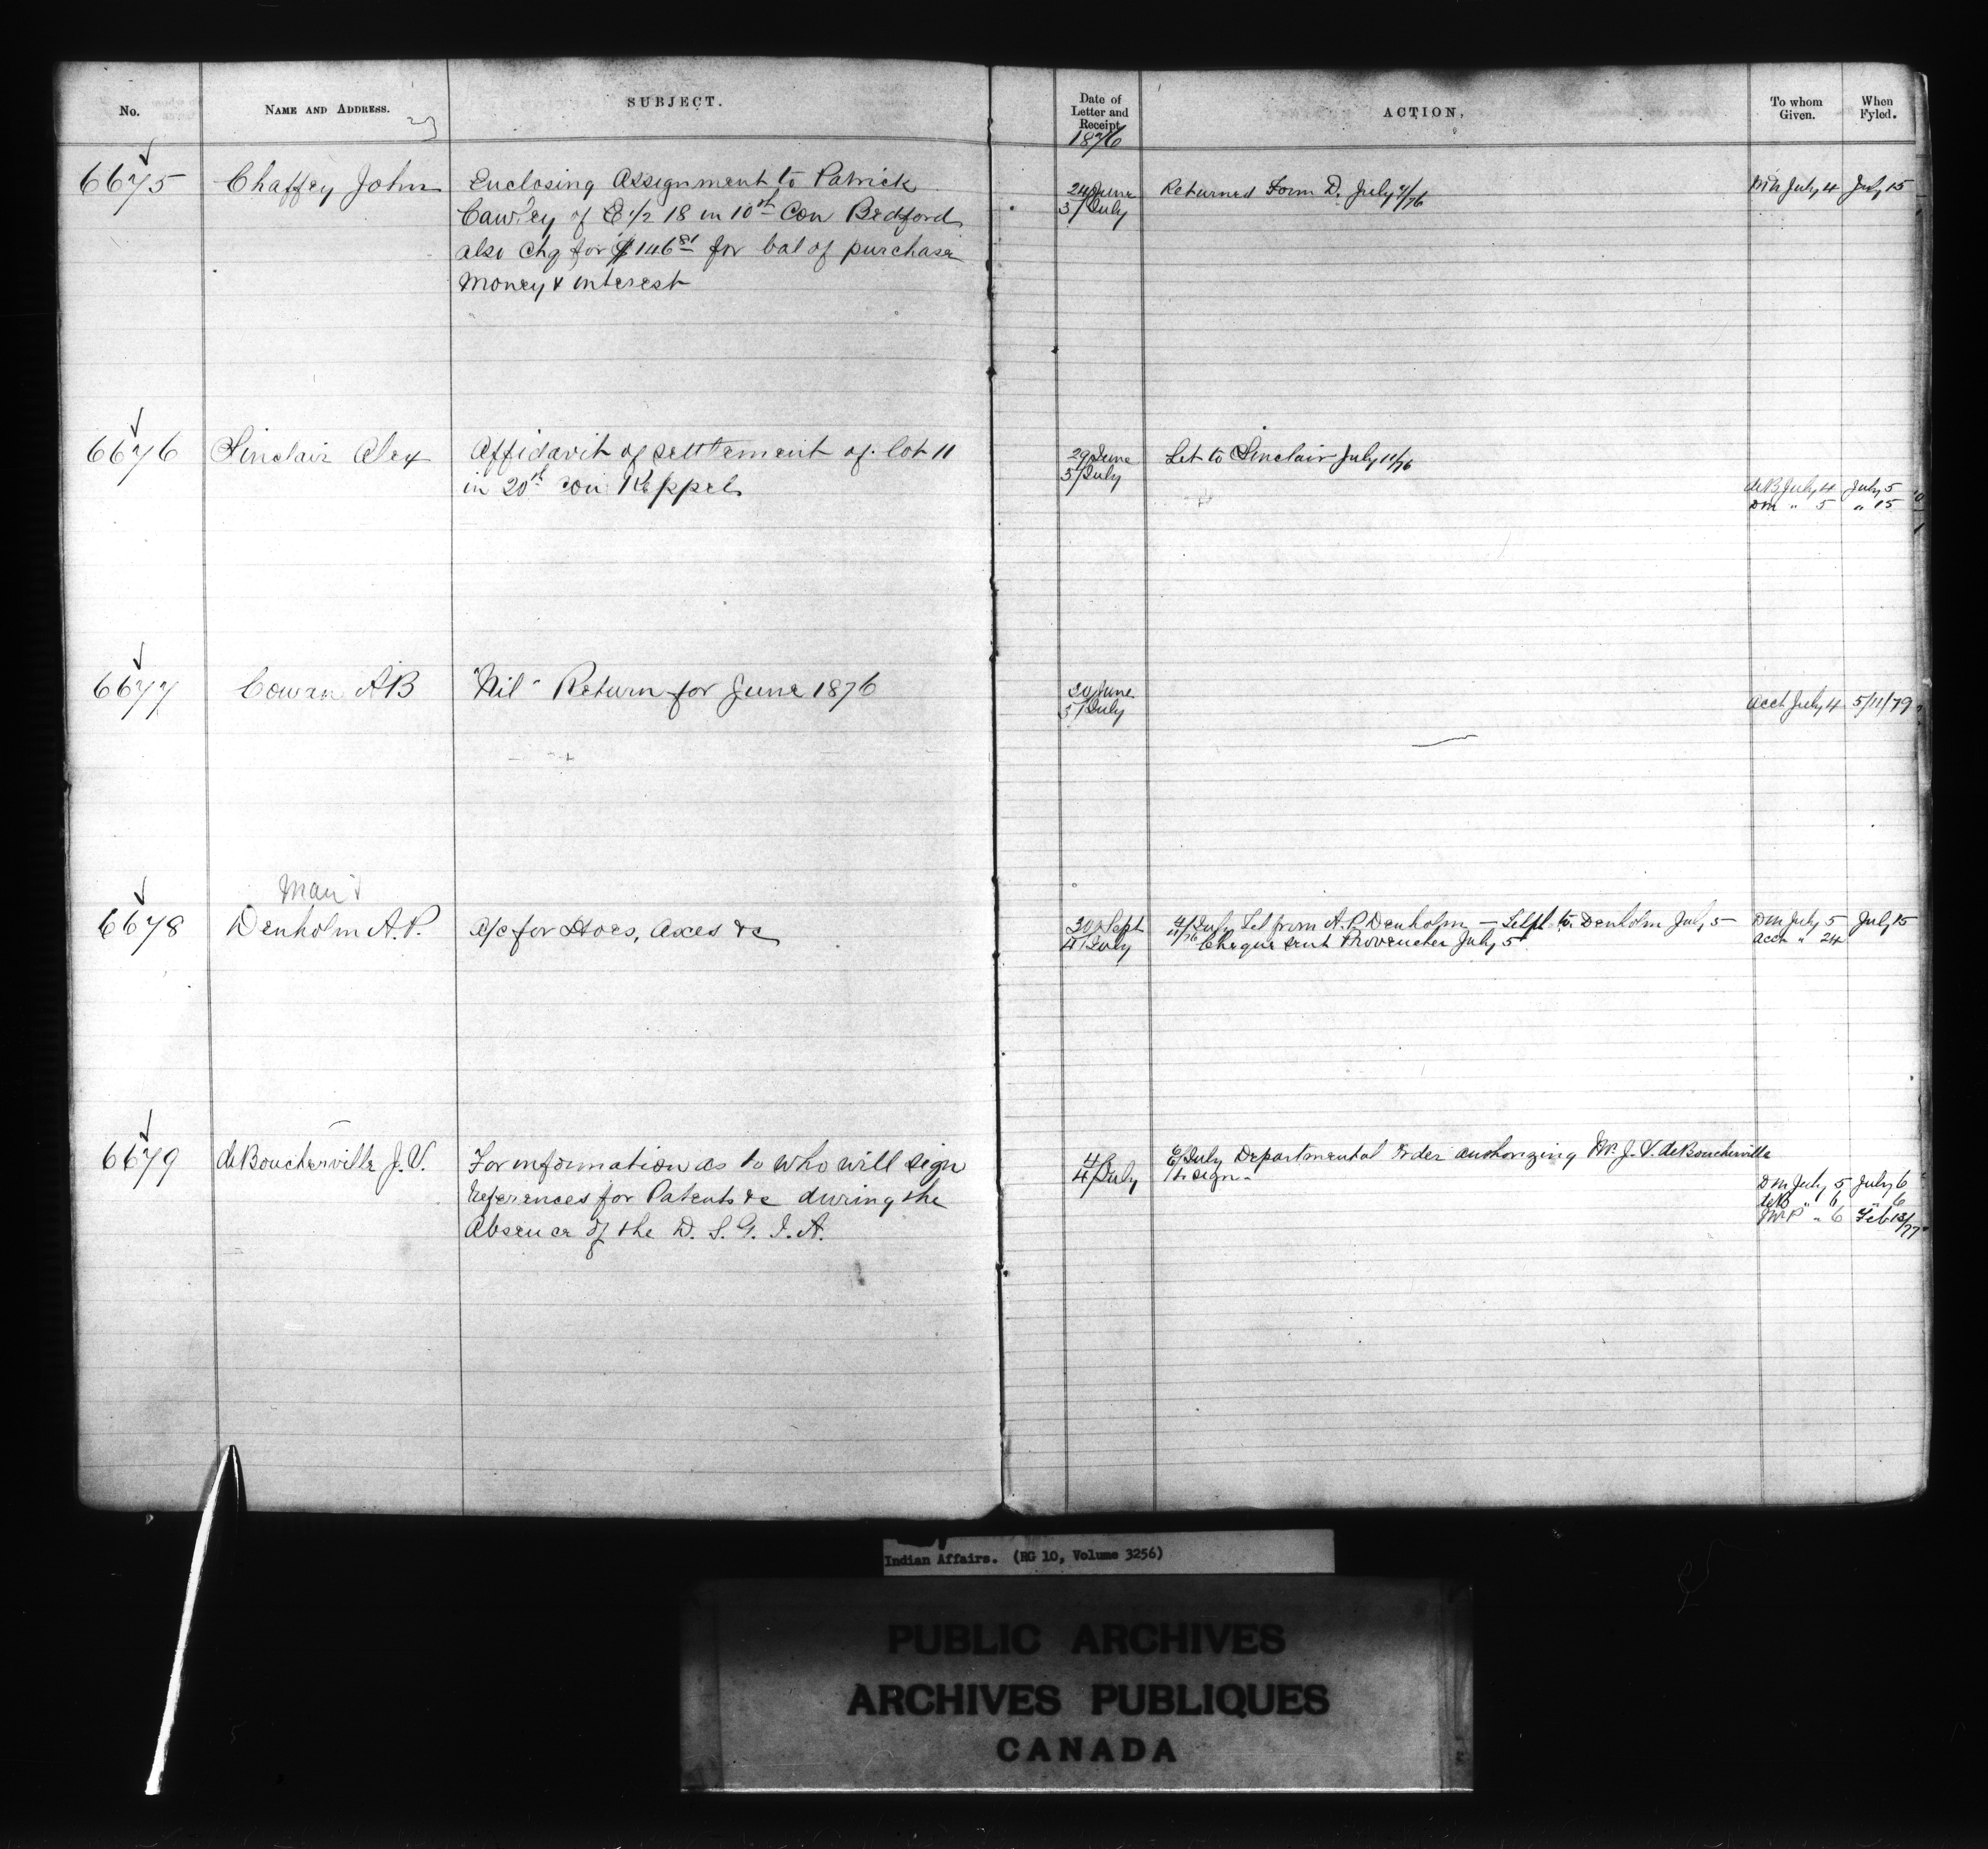 No.
NAME AND ADDRESS.
SUBJECT.
Date of
Letter and
Receipt
1876
ACTION,
To whom
Given.
When
Fyled.
6675
Chaffey John
Enclosing Assignment to Patrick
Cawley of E 1/2 18 in 10th Con Bedford
also Chq for $146 81 for bal of purchase
money & interest
24/June
3/July
Returned Form D. July 4/76
DM July 4
July 15
6676
Sinclair Alex
Affidavit of settlement of lot 11
in 20th Con Keppel
29/June
3/July
Let to Sinclair July 11/76
deB July 4
July 5
DM " 5
" 15
6677
Cowan A B
"Nil" Return for June 1876
30/June
3/July
Acct July 4
5/11/79
6678
Man
Denholm A. P.
a/c for Hoes, Axes &c
30/Sept
4/July
4/July Let from A. P. Denholm — to Denholm July 5
Cheque sent Provencher July 5
DM July 5
July 15
Acct " 24
6679
deBoucherville J. V.
For information as to who will sign
References for Patents &c during the
Absence of the D. S. G. I. A.
4
4/July
6/July Departmental Order authorizing Mr. J. V. deBoucherville
to sign.
DM July 5
July 6
deB " 6
" 6
" 6
Feb 13/77
Indian Affairs. (RG 10, Volume 3256)
PUBLIC ARCHIVES
ARCHIVES PUBLIQUES
CANADA